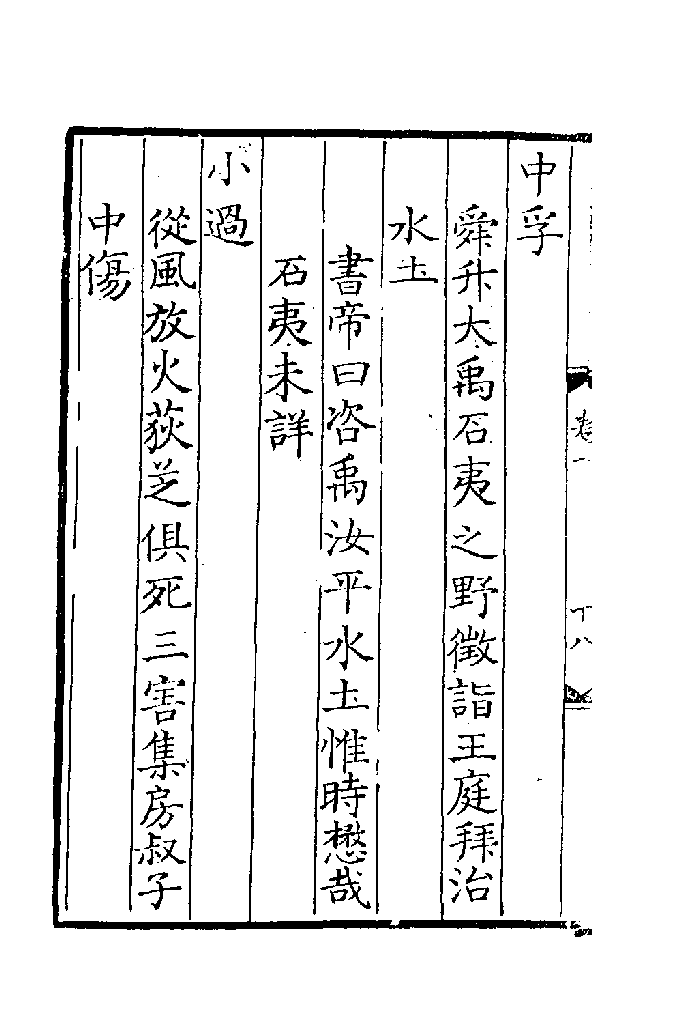 中孚
舜升大禹石夷之野徵詣王庭拜治
水土
書帝曰咨禹汝平水土惟時懋哉
石夷未詳
小過
從風放火荻芝俱死三害集房叔子
中傷
卷一
十八